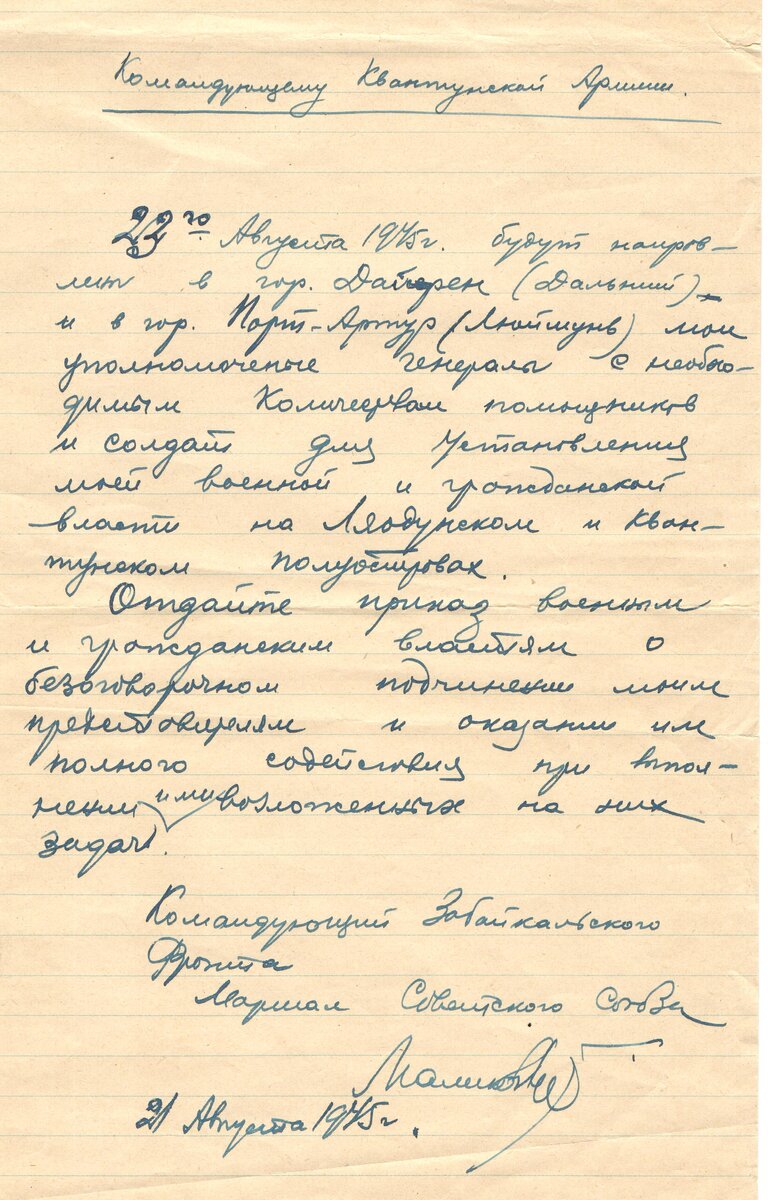 Командующему Квантунской Армии.
22го Августа 1945г. будут направ-
лены в гор. Дайрен (Дальний)
и в гор. Порт-Артур (Люйшунь) мои
уполномоченые генералы с необхо-
димым Количеством помощников
и солдат для установления
моей военной и гражданской
власти на Ляодунском и Кван-
тунском полуостровах.
Отдайте приказ военным
и гражданским властям о
безоговорочном подчинении моим
представителям и оказании им
полного содействия при выпол-
нении ими возложенных на них
задач.
Командующий Забайкальского
Фронта
Маршал Советского Союза
Малиновский
21 Августа 1945г.